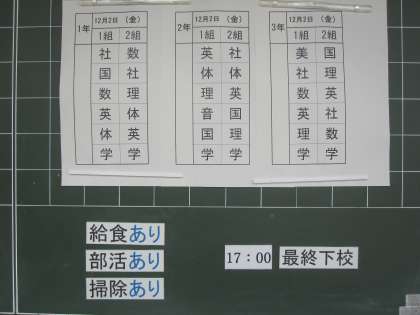 1年 12月2日 (金)
1組 2組
社 数
国 社
数 理
英 体
体 英
学 学
2年 12月2日 (金)
1組 2組
英 社
体 体
理 英
音 国
国 理
学 学
3年 12月2日 (金)
1組 2組
美 国
社 理
数 英
英 社
理 数
学 学
給食あり
部活あり
掃除あり
17:00 最終下校